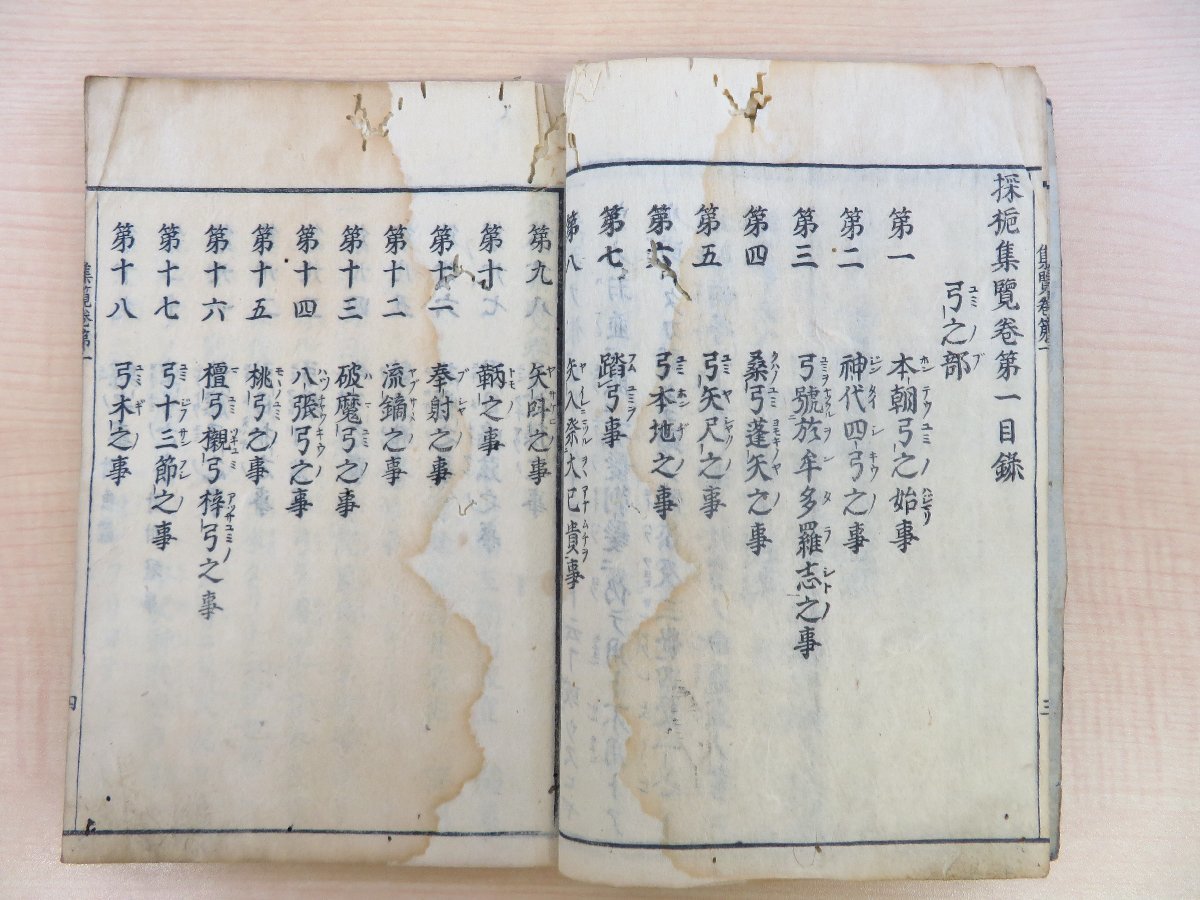 採栀集覽卷第一目錄
弓之部
第一 本朝弓之始事
第二 神代四弓之事
第三 弓號於牟多羅志之事
第四 桑弓蓬矢之事
第五 弓矢尺之事
第六 弓本地之事
第七 踏弓事
第八 矢入奈大已貴事
第九 矢叫之事
第十 鞆之事
第十一 奉射之事
第十二 流鏑之事
第十三 破魔弓之事
第十四 八張弓之事
第十五 桃弓之事
第十六 檀弓櫬弓梓弓之事
第十七 弓十三節之事
第十八 弓木之事
集覽卷第一
三
集覽卷第一
四